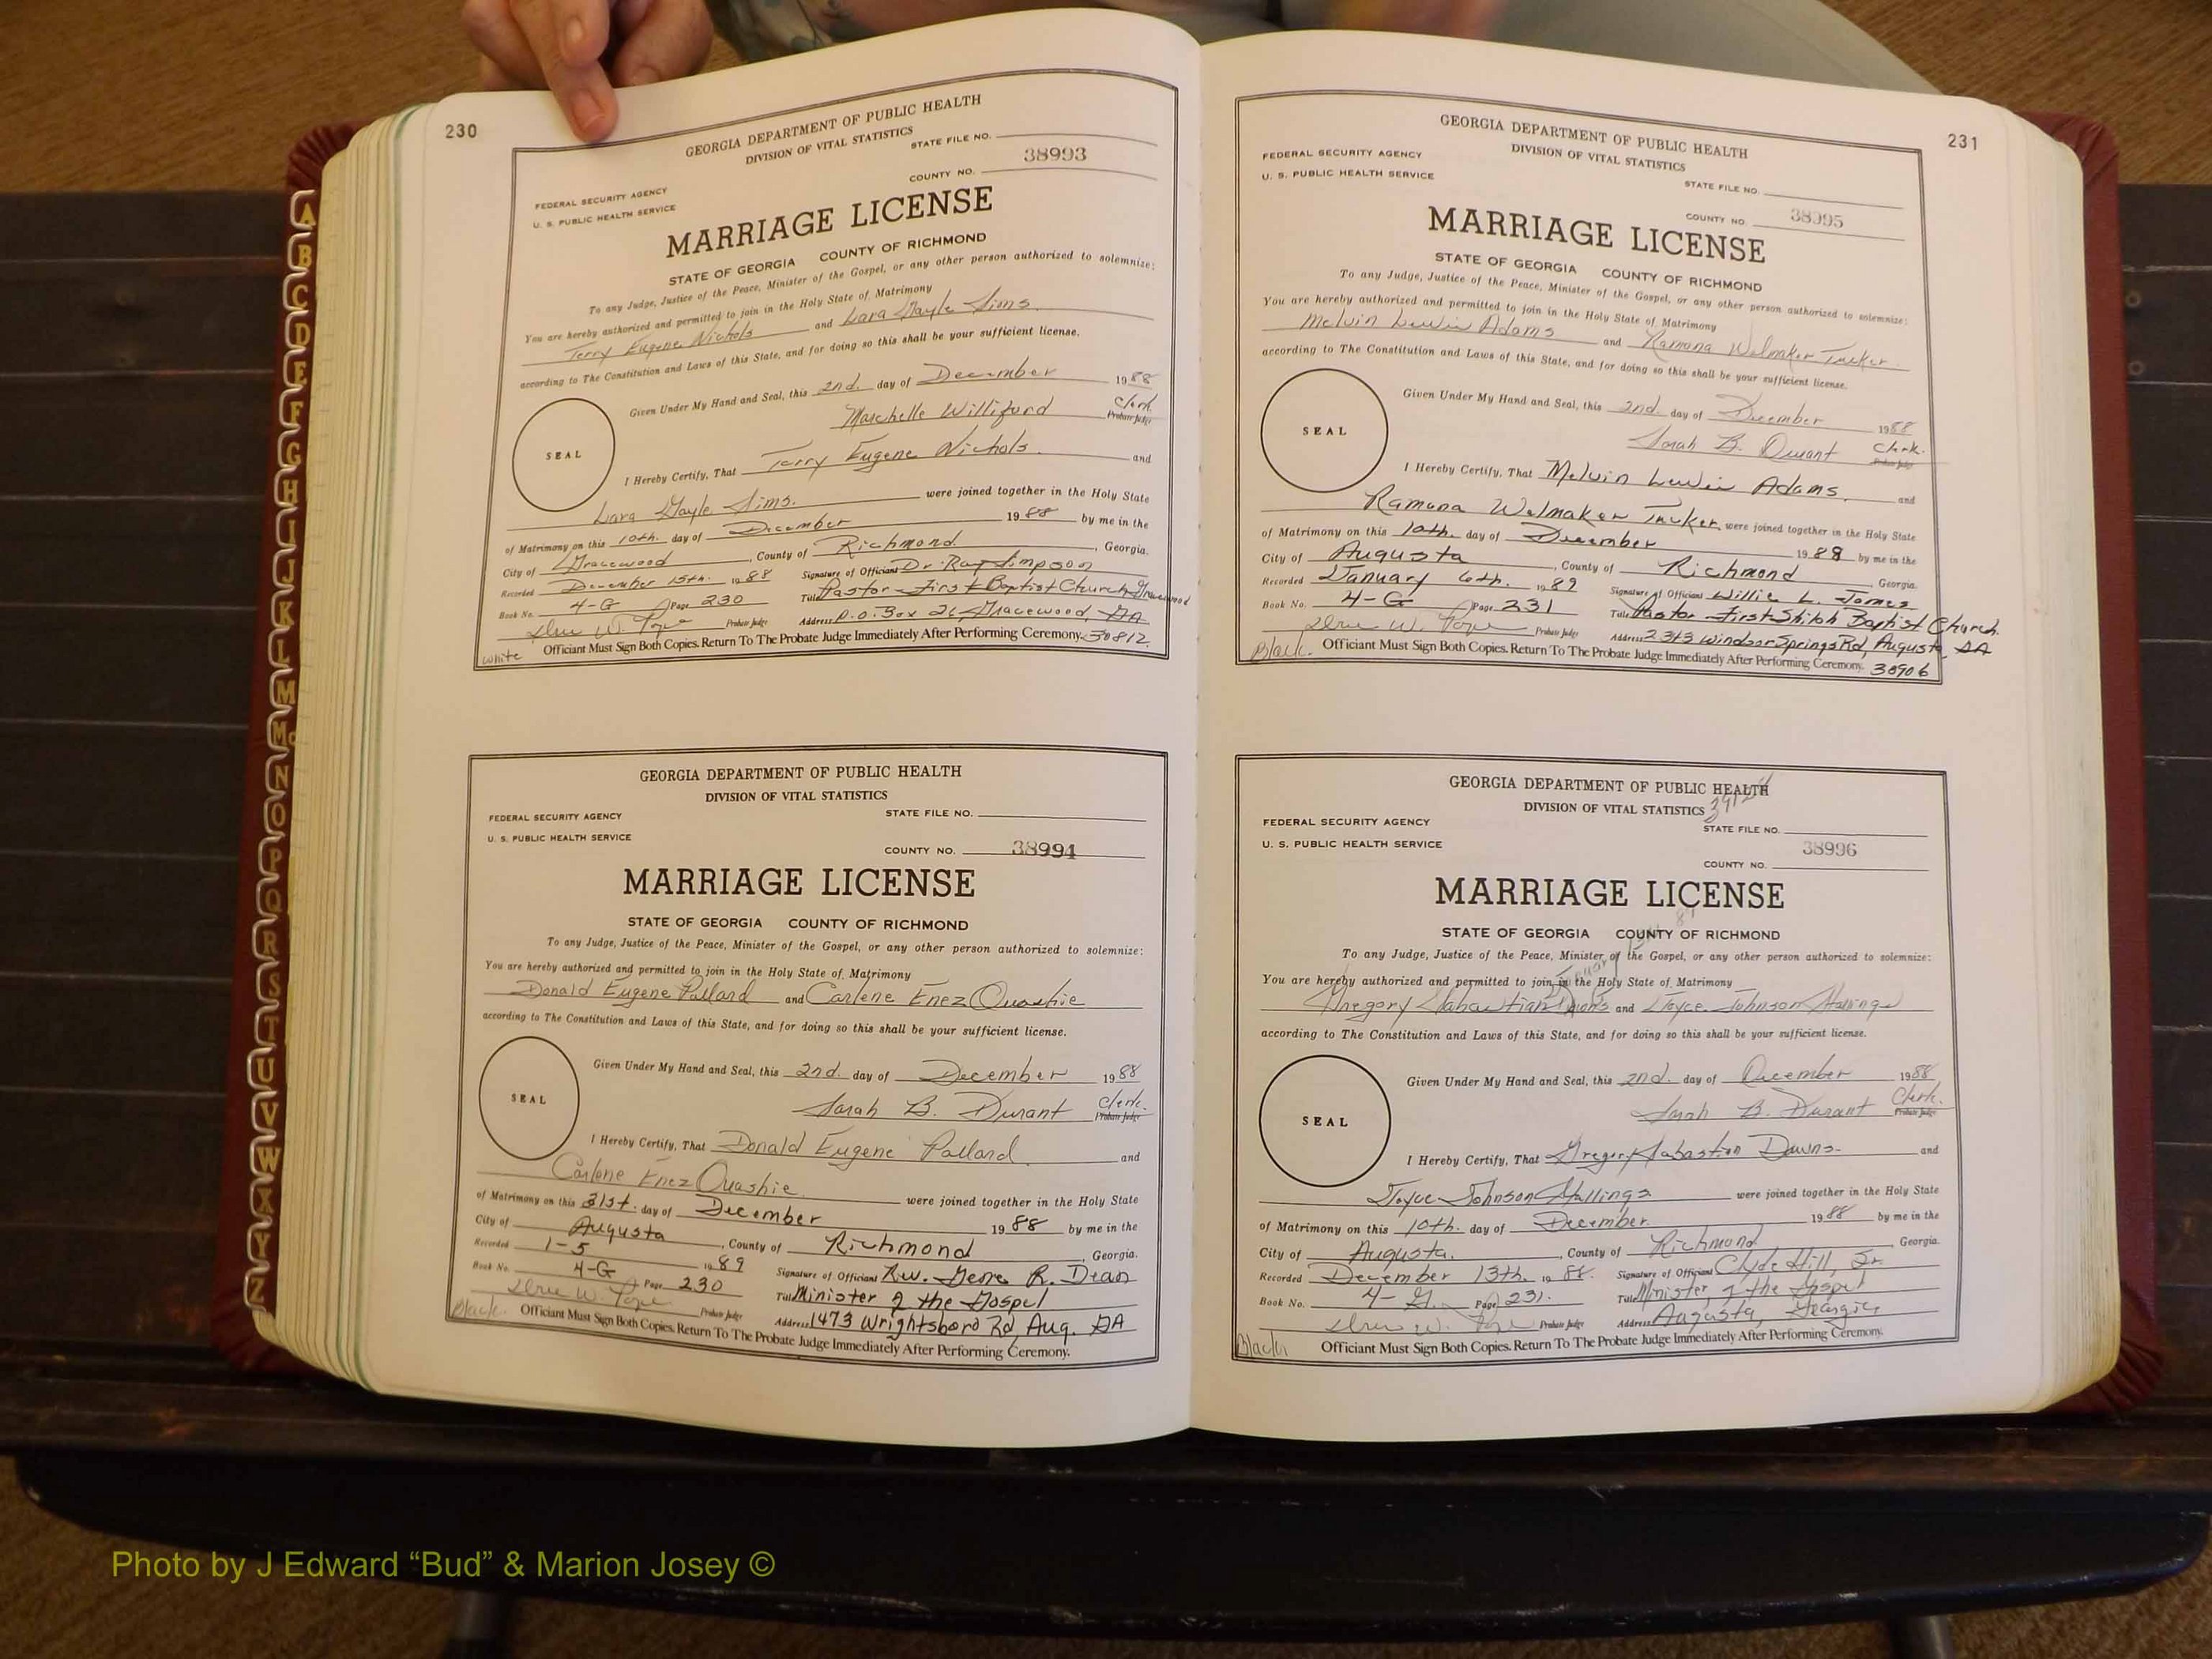 230
GEORGIA DEPARTMENT OF PUBLIC HEALTH
DIVISION OF VITAL STATISTICS
STATE FILE NO.
38993
COUNTY NO.
FEDERAL SECURITY AGENCY
U. S. PUBLIC HEALTH SERVICE
MARRIAGE LICENSE
STATE OF GEORGIA COUNTY OF RICHMOND
To any Judge, Justice of the Peace, Minister of the Gospel, or any other person authorized to solemnize:
You are hereby authorized and permitted to join in the Holy State of Matrimony
Terry Eugene Nichols and Lara Gayle Sims
according to The Constitution and Laws of this State, and for doing so this shall be your sufficient license.
Given Under My Hand and Seal, this 2nd. day of December 1988
Maschelle Williford Clerk
Probate Judge
SEAL
I Hereby Certify, That Terry Eugene Nichols and
Lara Gayle Sims. were joined together in the Holy State
of Matrimony on this 10th. day of December 1988 by me in the
City of Gracewood, County of Richmond, Georgia.
Recorded December 15th. 1988 Signature of Officiant Dr. Ray Simpson
Book No. 4-G Page 230 Title Pastor - First Baptist Church, Gracewood
Probate Judge Address P.O. Box 26, Gracewood, GA
White Officiant Must Sign Both Copies. Return To The Probate Judge Immediately After Performing Ceremony. 30812
GEORGIA DEPARTMENT OF PUBLIC HEALTH
DIVISION OF VITAL STATISTICS
FEDERAL SECURITY AGENCY STATE FILE NO.
U. S. PUBLIC HEALTH SERVICE
COUNTY NO. 38994
MARRIAGE LICENSE
STATE OF GEORGIA COUNTY OF RICHMOND
To any Judge, Justice of the Peace, Minister of the Gospel, or any other person authorized to solemnize:
You are hereby authorized and permitted to join in the Holy State of Matrimony
Donald Eugene Pollard and Carlene Enez Quashie
according to The Constitution and Laws of this State, and for doing so this shall be your sufficient license.
Given Under My Hand and Seal, this 2nd. day of December 1988
Sarah B. Durant Clerk.
Probate Judge
SEAL
I Hereby Certify, That Donald Eugene Pollard and
Carlene Enez Quashie were joined together in the Holy State
of Matrimony on this 31st. day of December 1988 by me in the
City of Augusta, County of Richmond, Georgia.
Recorded 1-5 1989 Signature of Officiant Rev. R. Dean
Book No. 4-G Page 230 Title Minister of the Gospel
Probate Judge Address 1473 Wrightsboro Rd, Aug. GA
Black. Officiant Must Sign Both Copies. Return To The Probate Judge Immediately After Performing Ceremony.
231
GEORGIA DEPARTMENT OF PUBLIC HEALTH
DIVISION OF VITAL STATISTICS
FEDERAL SECURITY AGENCY
U. S. PUBLIC HEALTH SERVICE
STATE FILE NO.
COUNTY NO. 38995
MARRIAGE LICENSE
STATE OF GEORGIA COUNTY OF RICHMOND
To any Judge, Justice of the Peace, Minister of the Gospel, or any other person authorized to solemnize:
You are hereby authorized and permitted to join in the Holy State of Matrimony
Melvin Lewis Adams and Ramona Welmaker Tucker
according to The Constitution and Laws of this State, and for doing so this shall be your sufficient license.
Given Under My Hand and Seal, this 2nd. day of December 1988
Sarah B. Durant Clerk.
Probate Judge
SEAL
I Hereby Certify, That Melvin Lewis Adams. and
Ramona Welmaker Tucker were joined together in the Holy State
of Matrimony on this 10th. day of December 1988 by me in the
City of Augusta, County of Richmond, Georgia.
Recorded January 6th. 1989 Signature of Officiant Willie L. Jones
Book No. 4-G Page 231 Title Pastor - First Shiloh Baptist Church.
Probate Judge Address 2343 Windsor Springs Rd, Augusta, GA
Black. Officiant Must Sign Both Copies. Return To The Probate Judge Immediately After Performing Ceremony. 30906
GEORGIA DEPARTMENT OF PUBLIC HEALTH
DIVISION OF VITAL STATISTICS
FEDERAL SECURITY AGENCY STATE FILE NO.
U. S. PUBLIC HEALTH SERVICE 38996
COUNTY NO.
MARRIAGE LICENSE
STATE OF GEORGIA COUNTY OF RICHMOND
To any Judge, Justice of the Peace, Minister of the Gospel, or any other person authorized to solemnize:
You are hereby authorized and permitted to join in the Holy State of Matrimony
Gregory Sabastian and Joyce Johnson Stallings
according to The Constitution and Laws of this State, and for doing so this shall be your sufficient license.
Given Under My Hand and Seal, this 2nd. day of December 1988
Sarah B. Durant Clerk.
Probate Judge
SEAL
I Hereby Certify, That Gregory Sabastian Downs and
Joyce Johnson Stallings were joined together in the Holy State
of Matrimony on this 10th. day of December. 1988 by me in the
City of Augusta, County of Richmond, Georgia.
Recorded December 13th. 1988. Signature of Officiant Clyde Hill, Sr.
Book No. 4-G. Page 231. Title Minister of the Gospel
Probate Judge Address Augusta, Georgia
Black Officiant Must Sign Both Copies. Return To The Probate Judge Immediately After Performing Ceremony.
A
B
C
D
E
F
G
H
I
J
K
L
M
Mc
N
O
P
Q
R
S
T
U
V
W
X
Y
Z
Photo by J Edward “Bud” & Marion Josey ©